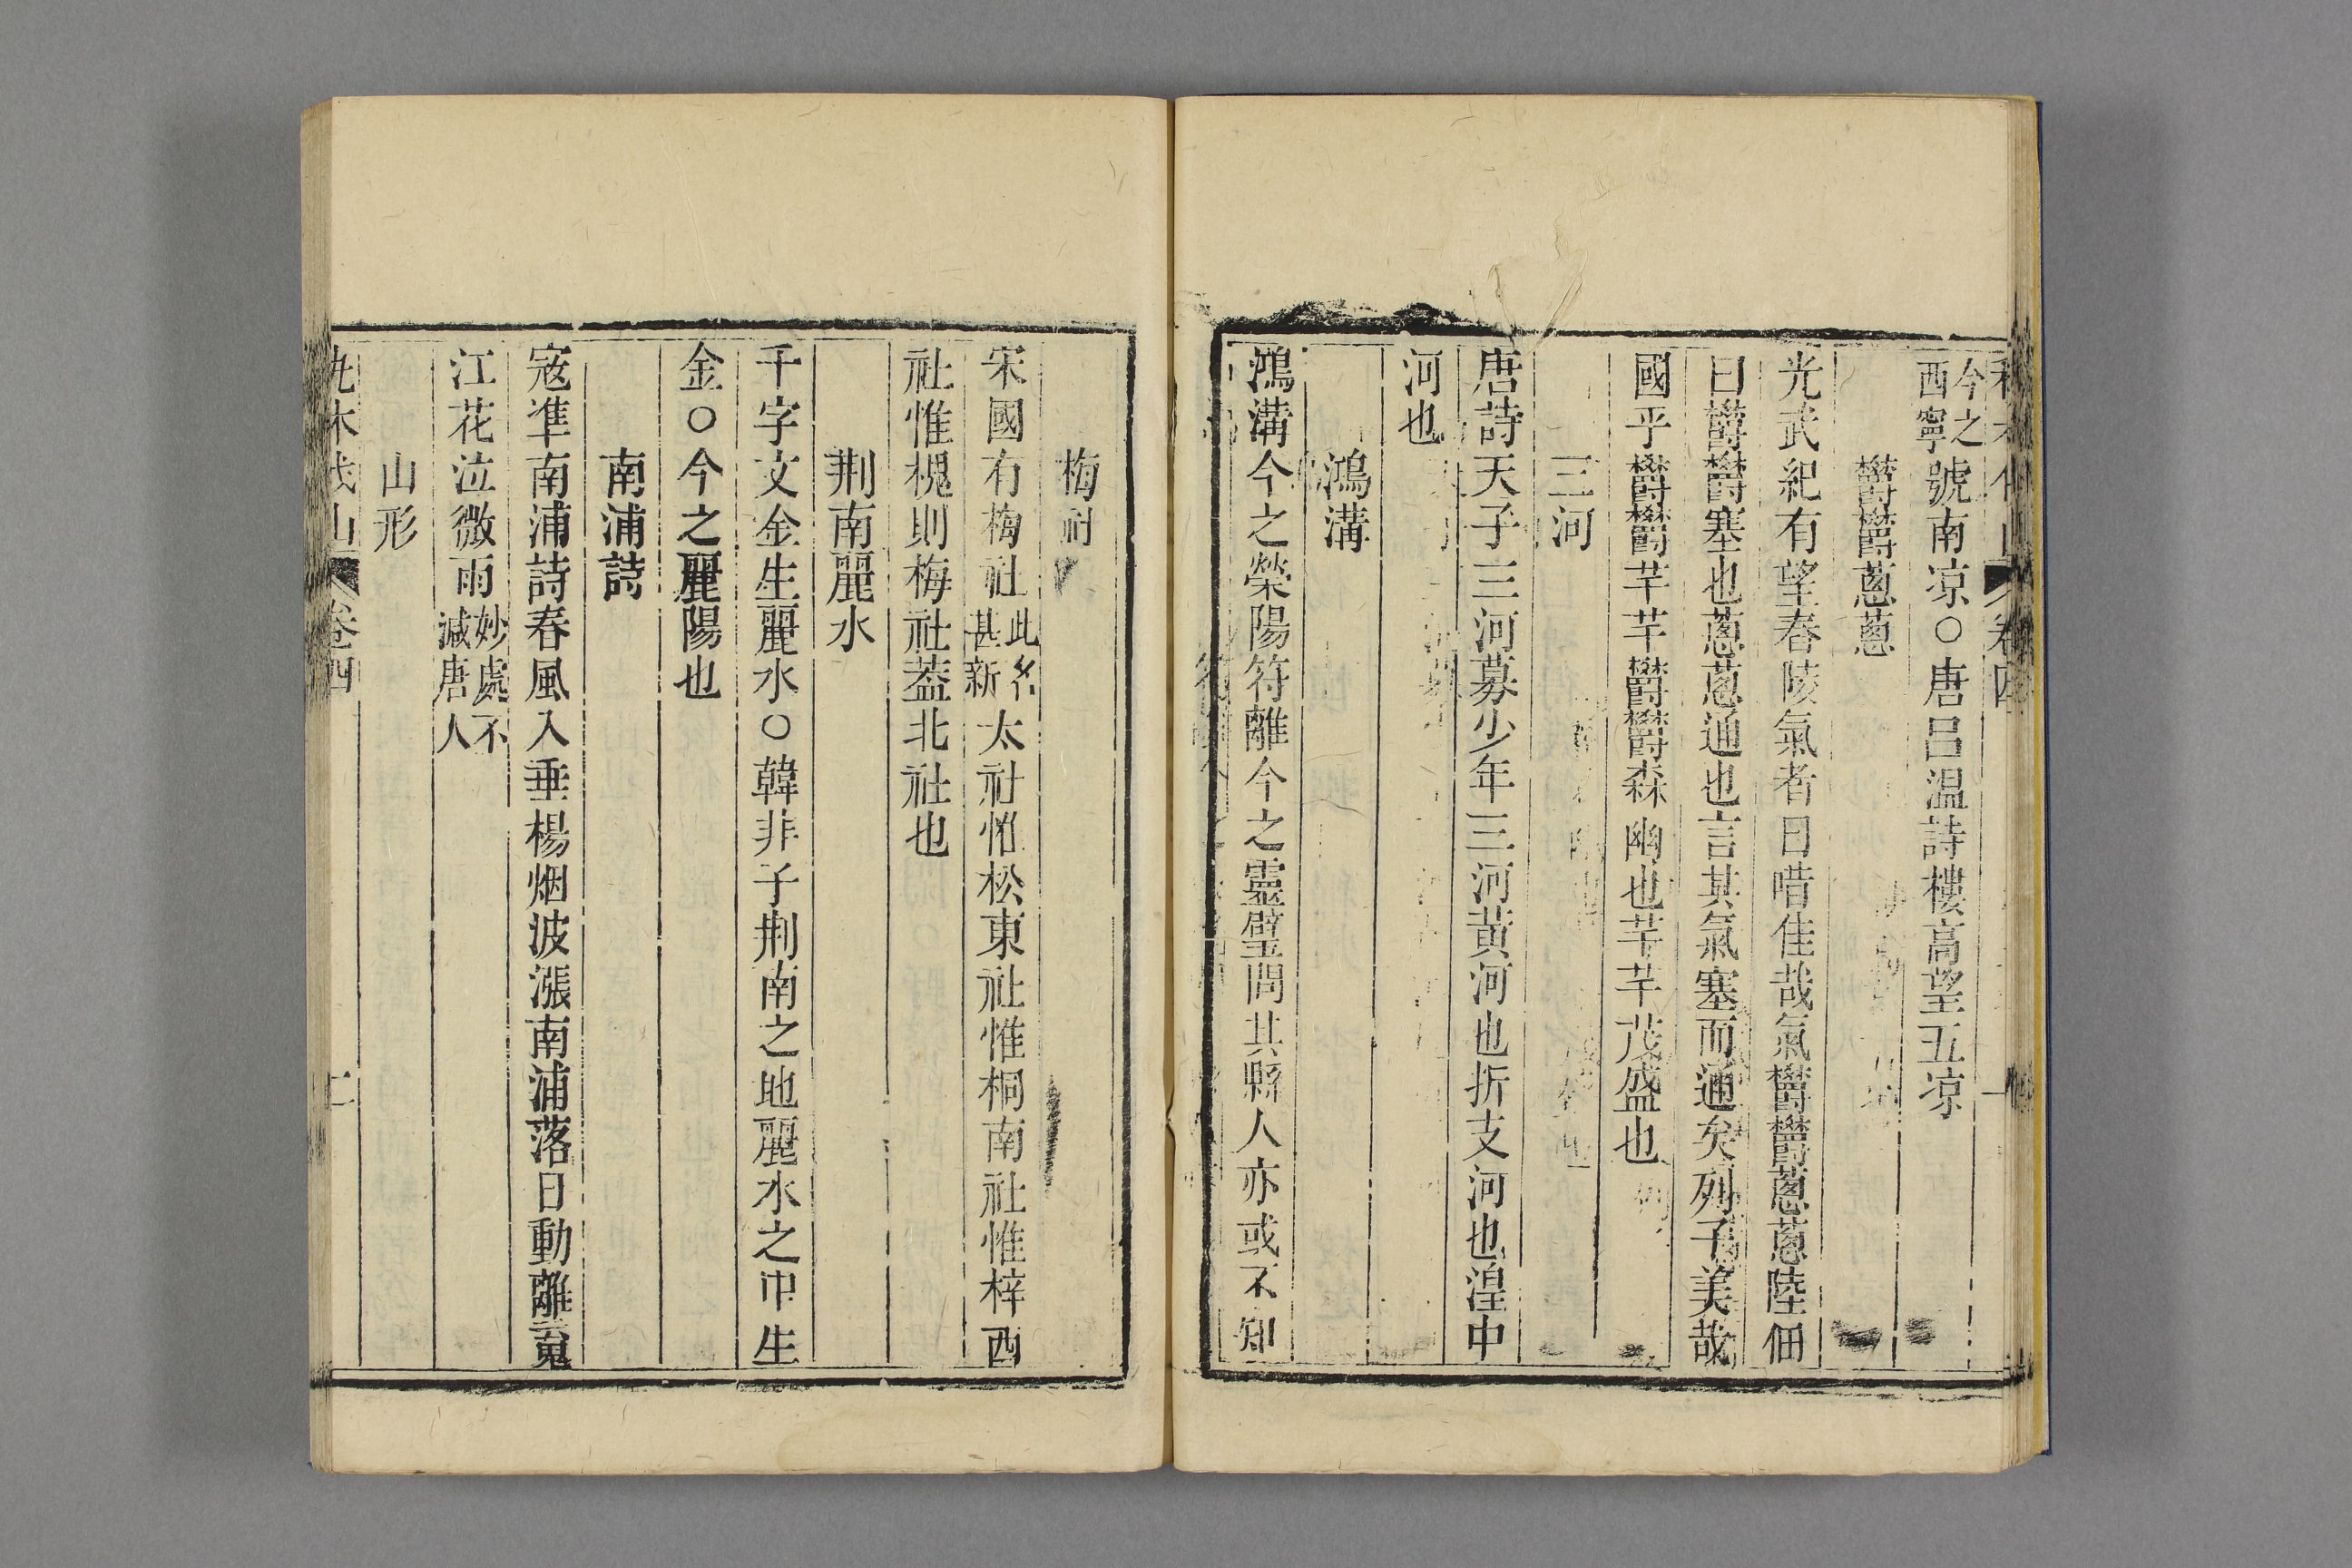 今之西寧號南凉○唐呂温詩樓高望五凉
欝欝蔥蔥
光武紀有望春陵氣者曰唶佳哉氣欝欝蔥蔥陸佃
曰欝欝塞也蔥蔥通也言其氣塞而通矣列子美哉
國乎欝欝芊芊欝欝森幽也芊芊茂盛也
三河
唐詩天子三河募少年三河黃河也折支河也湟中
河也
鴻溝
鴻溝今之滎陽符離今之靈璧間其縣人亦或不知
梅社
宋國有梅社此名甚新太社惟松東社惟桐南社惟梓西
社惟槐則梅社葢北社也
荆南麗水
千字文金生麗水○韓非子荆南之地麗水之中生
金○今之麗陽也
南浦詩
寇凖南浦詩春風入垂楊烟波漲南浦落日動離䰟
江花泣微雨妙處不減唐人
山形
卷四
二